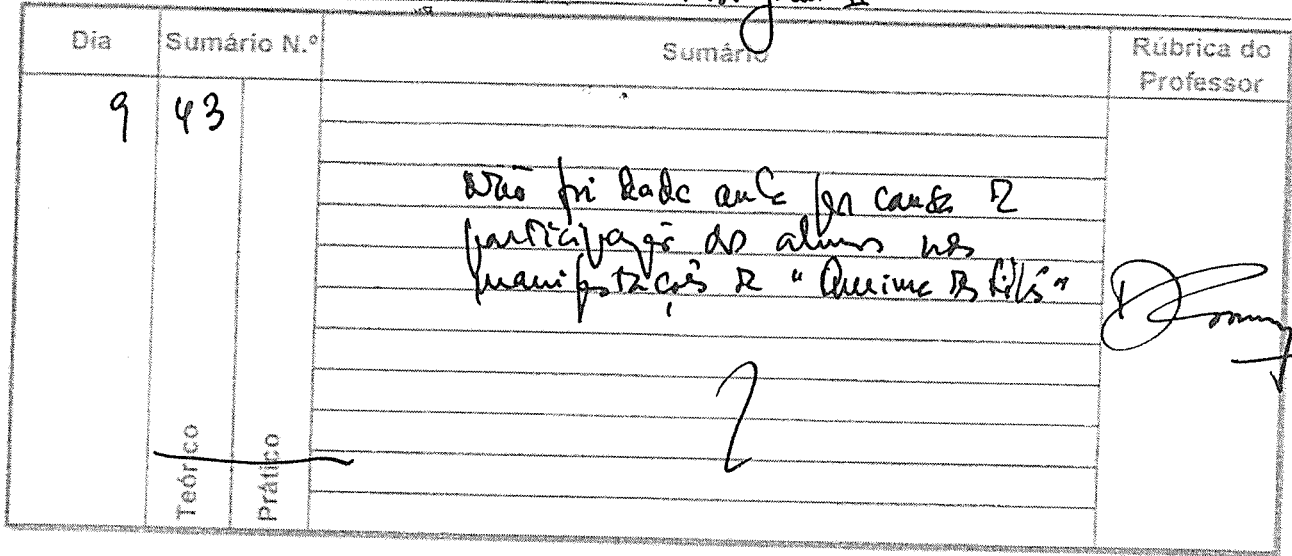 II
Dia Sumário N.º Sumário Rúbrica do
Professor
9 43
Não foi dada aula por causa da
participação dos alunos nas
manifestações da "Queima das Fitas"
Teórico Prático